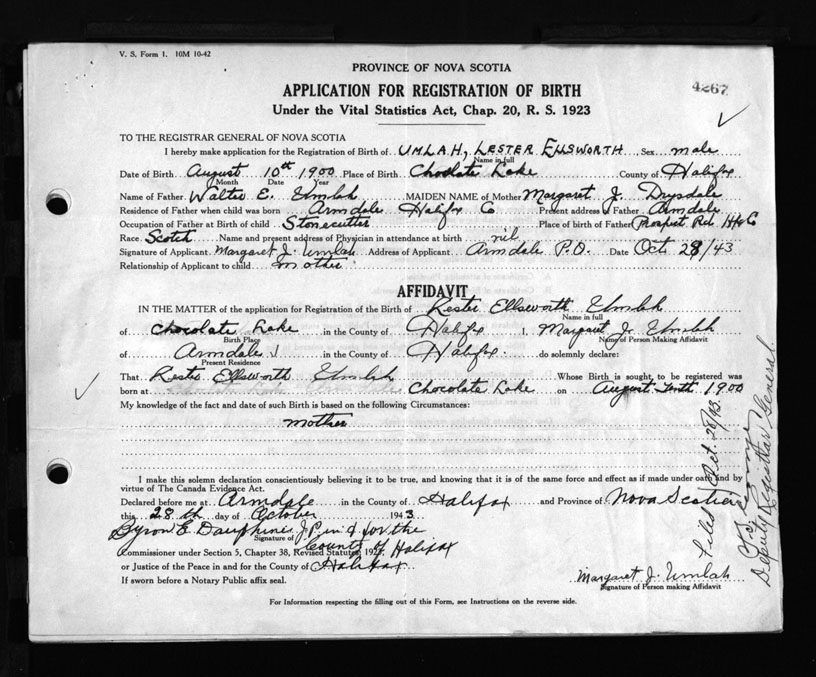 V. S. Form 1. 10M 10-42
PROVINCE OF NOVA SCOTIA
4267
APPLICATION FOR REGISTRATION OF BIRTH
Under the Vital Statistics Act, Chap. 20, R. S. 1923
TO THE REGISTRAR GENERAL OF NOVA SCOTIA
I hereby make application for the Registration of Birth of UMLAH, LESTER ELLSWORTH Sex male
Name in full
Date of Birth August 10th 1900 Place of Birth Choclate Lake County of Halifax
Month Date Year
Name of Father Walter E. Umlah MAIDEN NAME of Mother Margaret J. Drysdale
Residence of Father when child was born Armdale Halifax Co Present address of Father Armdale
Occupation of Father at Birth of child Stonecutter Place of birth of Father Prospect Rd. Hfx Co
Race Scotch Name and present address of Physician in attendance at birth nil
Signature of Applicant Margaret J. Umlah Address of Applicant Armdale P.O. Date Oct 28/43
Relationship of Applicant to child mother
AFFIDAVIT
IN THE MATTER of the application for Registration of the Birth of Lester Ellsworth Umlah
Name in full
of Chocolate Lake in the County of Halifax I, Margaret J. Umlah
Birth Place Name of Person Making Affidavit
of Armdale in the County of Halifax do solemnly declare:
Present Residence
That Lester Ellsworth Umlah Whose Birth is sought to be registered was
born at Chocolate Lake on August Tenth 1900
My knowledge of the fact and date of such Birth is based on the following Circumstances:
Mother
I make this solemn declaration conscientiously believing it to be true, and knowing that it is of the same force and effect as if made under oath and by
virtue of The Canada Evidence Act.
Declared before me at Armdale in the County of Halifax and Province of Nova Scotia
this 28th day of October 1943
Byron E. Dauphinee J.P. in & for the
Signature of
County of Halifax
Commissioner under Section 5, Chapter 38, Revised Statutes, 1923
or Justice of the Peace in and for the County of Halifax
If sworn before a Notary Public affix seal.
Margaret J. Umlah
Signature of Person making Affidavit
For Information respecting the filling out of this Form, see Instructions on the reverse side.
Filed Oct. 28/43.
Deputy Registrar General.